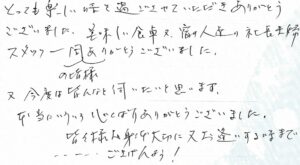 とっても楽しい時を過ごさせていただきありがとう
ございました。美味しい食卓又、宿の人達の
スタッフ一同ありがとうございました。
の皆様
又今度は皆んなと伺いたいと思います。
本当にいろいろありがとうございました。
皆々様お身体大切に又お逢いする日まで
‥‥‥ごきげんよう!